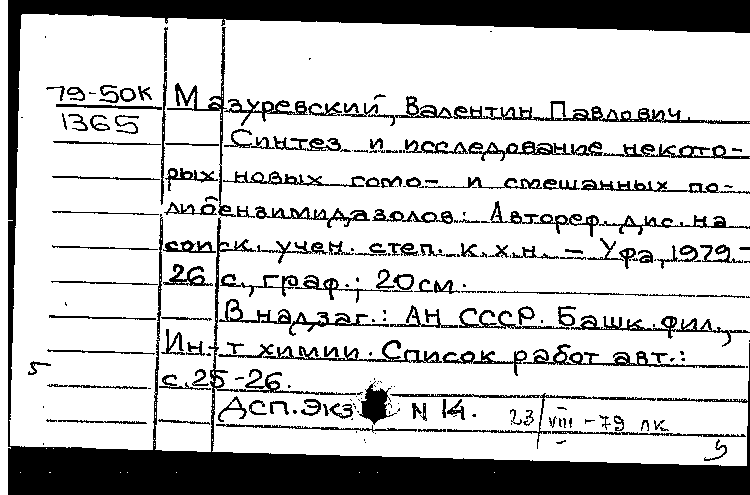 79-50К Мазуревский, Валентин Павлович.
1365
Синтез и исследование некото-
рых новых гомо- и смешанных по-
либензимидазолов: Автореф. дис. на
соиск. учен. степ. к.х.н. – Уфа, 1979.-
26 с., граф.; 20см.
В надзаг.: АН СССР. Башк. фил.,
Ин-т химии. Список работ авт.:
с. 25-26.
5
ДСП. Экз N 14. 23/VIII-79 ЛК